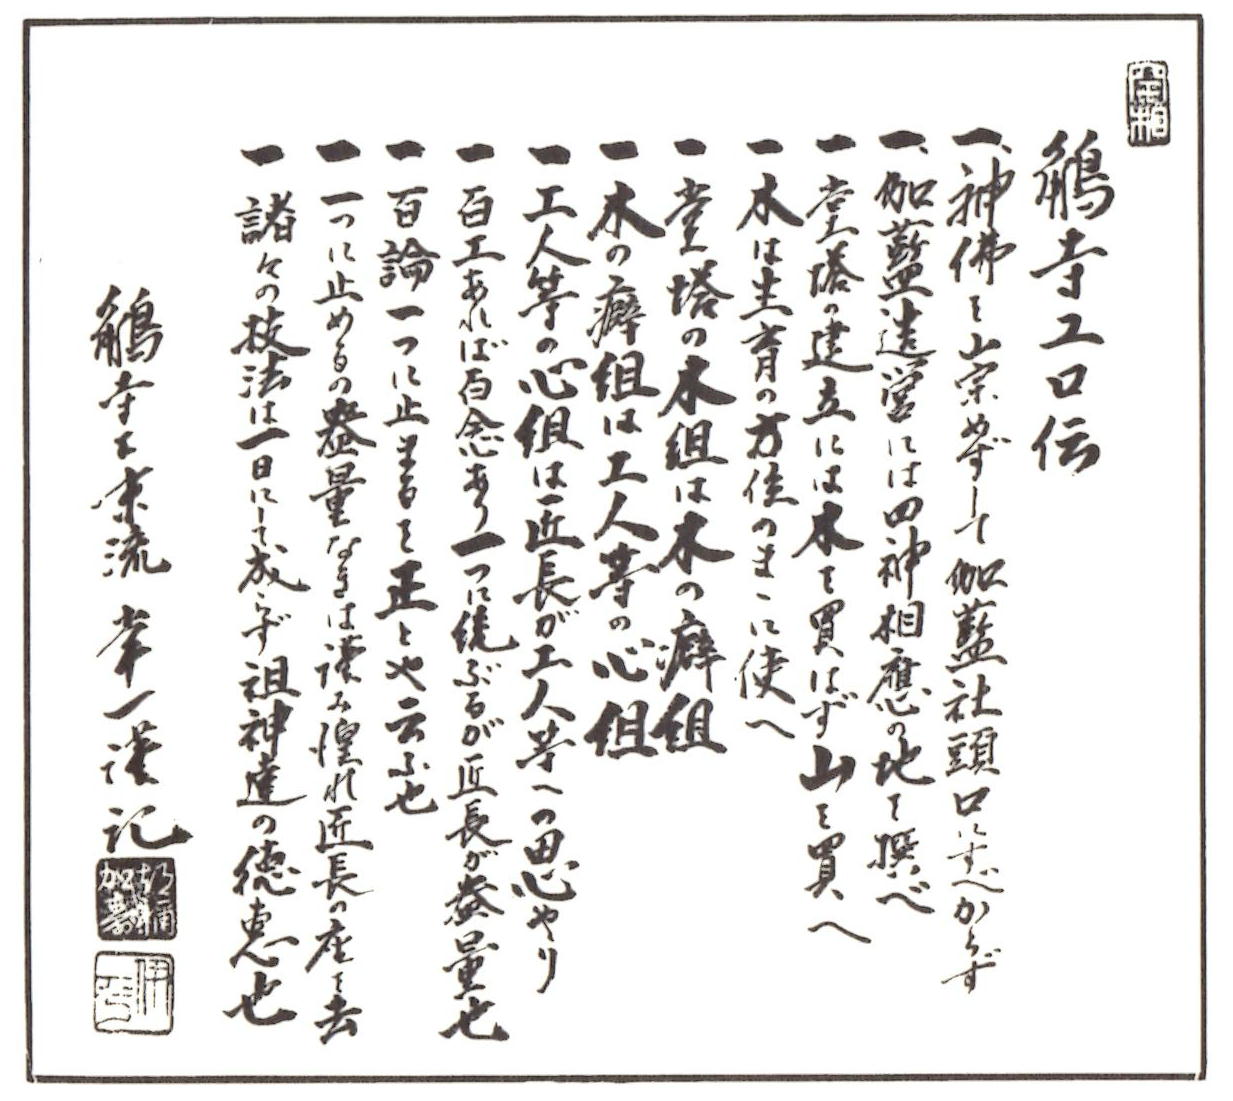 鵤寺工口伝
一、神佛を崇めずして伽藍社頭口にすべからず
一、伽藍造営には四神相應の地を撰べ
一 堂塔の建立には木を買はず山を買へ
一 木は生育の方位のまゝに使へ
一 堂塔の木組は木の癖組
一 木の癖組は工人等の心組
一 工人等の心組は匠長が工人等への思やり
一 百工あれば百念あり一つに統ぶるが匠長が裁量也
一 百論一つに止まるを正とや云ふ也
一 一つに止めるの器量なきは謹み惶れ匠長の座を去
一 諸々の技法は一日にして成らず祖神達の徳恵也
鵤寺工末流 常一謹記